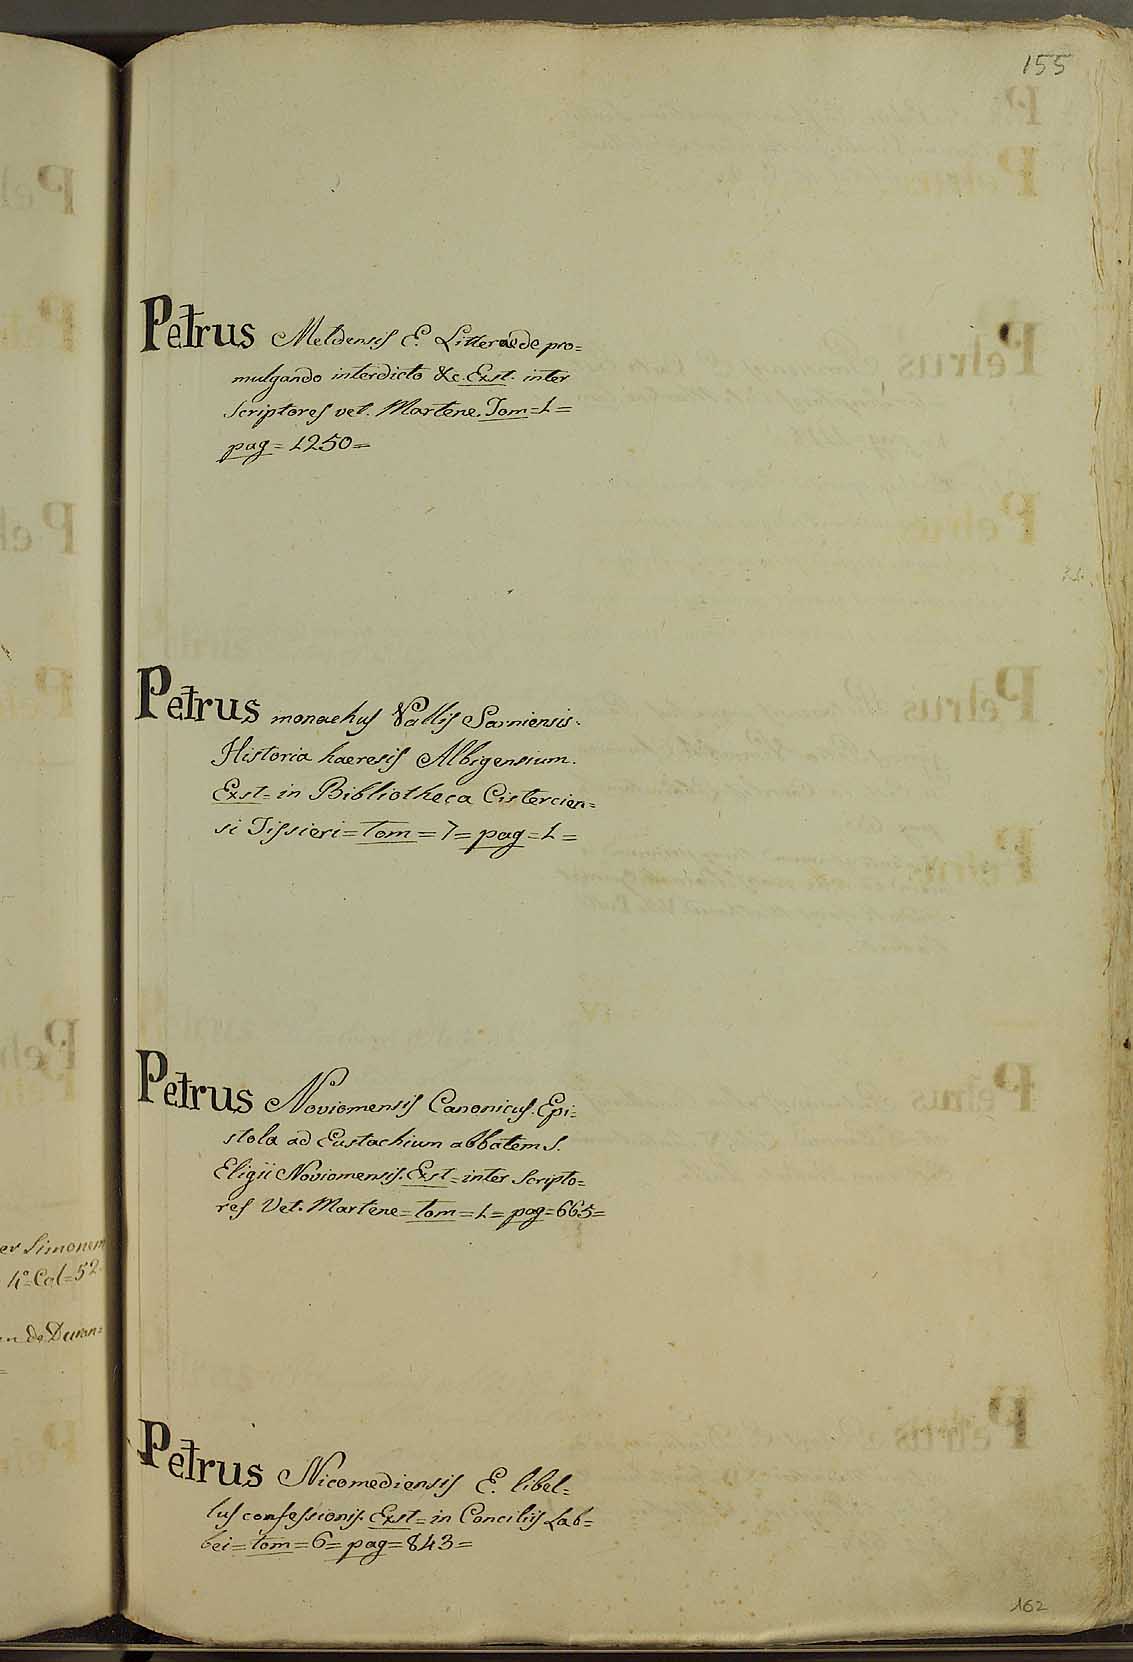 155
Petrus Meldensis E. Litterae de pro=
mulgando interdicto &c. Ext. inter
scriptores vet. Martene. Tom=1=
pag=1250=
Petrus monachus Vallis Sarniensis.
Historia haeresis Albigensium.
Ext= in Bibliotheca Cistercien=
si Tissieri=tom=7=pag=1=
Petrus Noviomensis Canonicus. Epi=
stola ad Eustachium abbatem S.
Eligii Noviomensis. Ext=inter scripto=
res Vet. Martene=tom=1=pag=665=
Petrus Nicomediensis E. libel=
lus confessionis. Ext=in Conciliis Lab=
bei=tom=6=pag=843=
162
er Simonem
4°=Col=52
en de Duran=